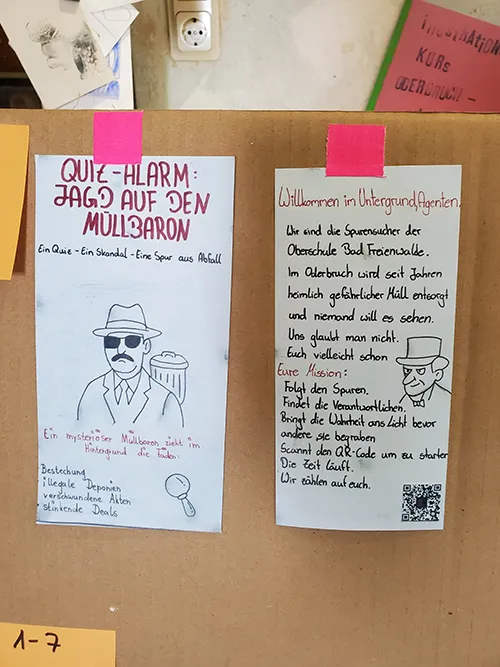 ILLUSTRATION
KURS
ODERBRUCH -
QUIZ-ALARM:
JAGD AUF DEN
MÜLLBARON
Ein Quiz - Ein Skandal - Eine Spur aus Abfall
Ein mysteriöser Müllbaron zieht im
Hintergrund die Fäden:
· Bestechung
· illegale Deponien
· verschwundene Akten
· stinkende Deals
Willkommen im Untergrund, Agenten.
Wir sind die Spurensucher der
Oberschule Bad Freienwalde.
Im Oderbruch wird seit Jahren
heimlich gefährlicher Müll entsorgt
und niemand will es sehen.
Uns glaubt man nicht.
Euch vielleicht schon
Eure Mission:
Folgt den Spuren.
Findet die Verantwortlichen.
Bringt die Wahrheit ans Licht bevor
andere sie begraben
Scannt den QR-Code um zu starten
Die Zeit läuft.
Wir zählen auf euch.
1-7